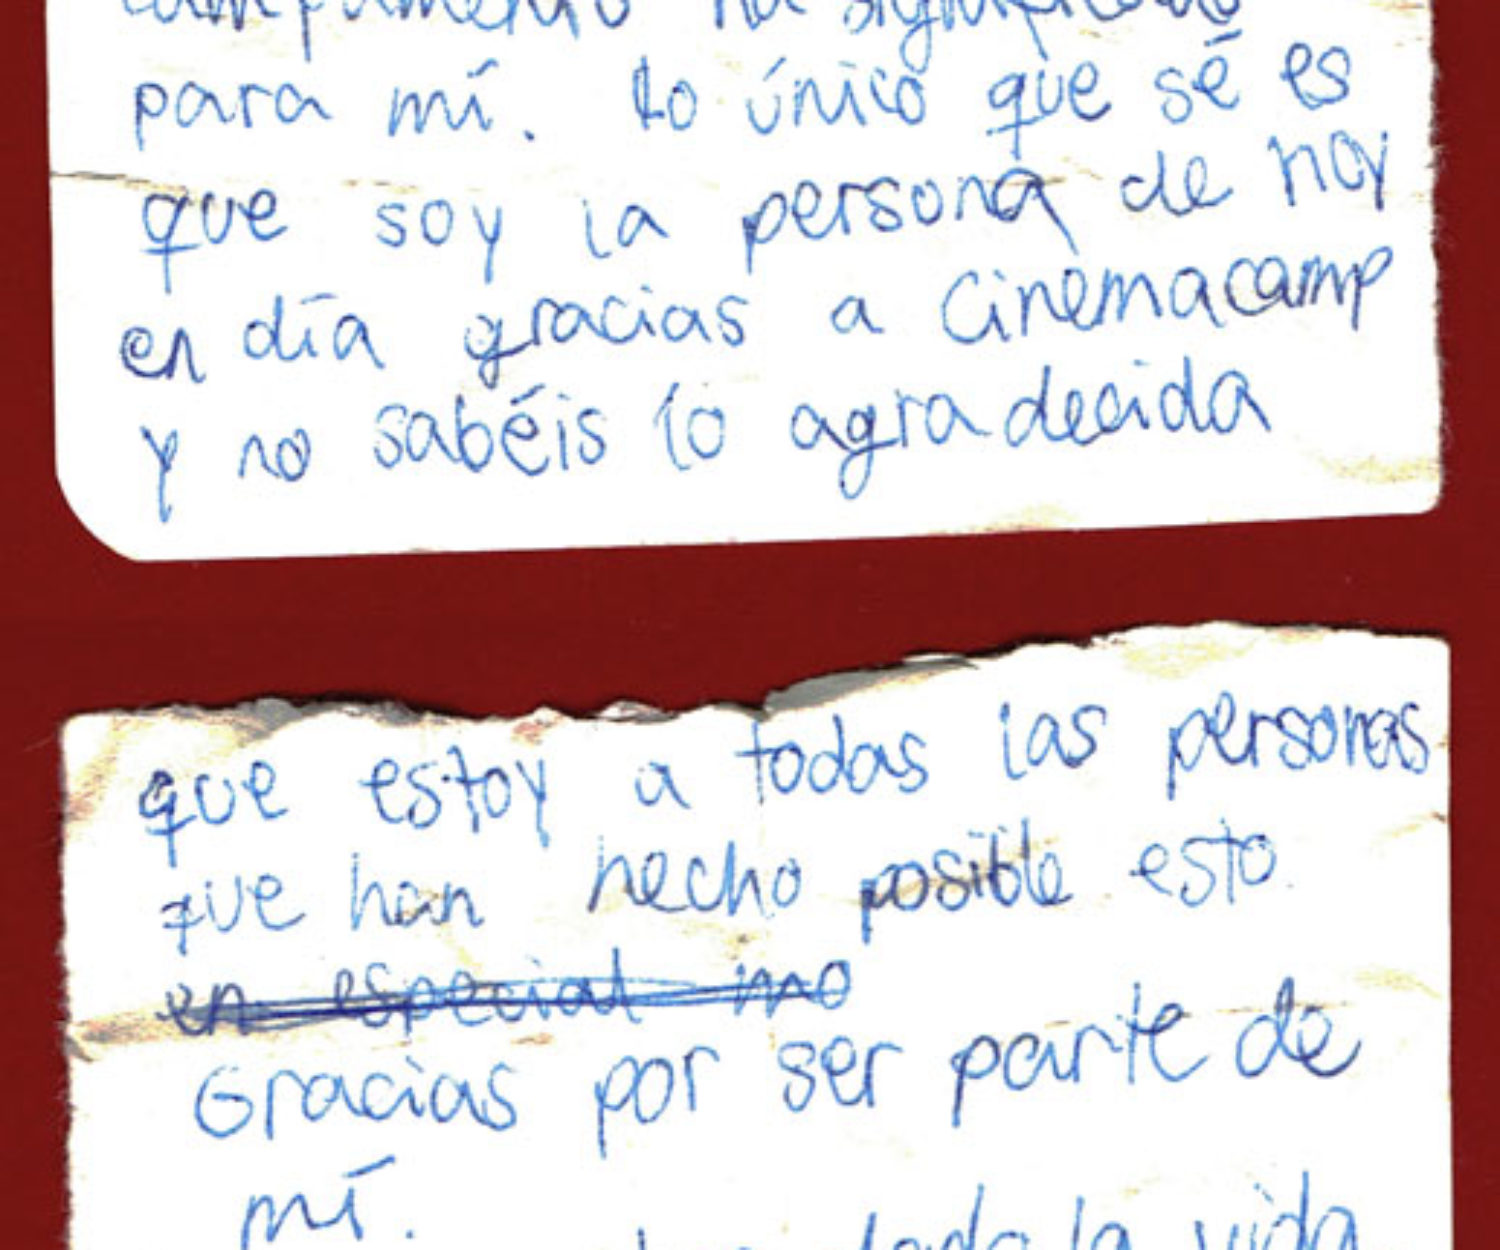 campamento ha significado
para mí. Lo único que sé es
que soy la persona de hoy
en día gracias a Cinemacamp
y no sabéis lo agradecida
que estoy a todas las personas
que han hecho posible esto.
en especial mo
Gracias por ser parte de
mí.
dado la vida